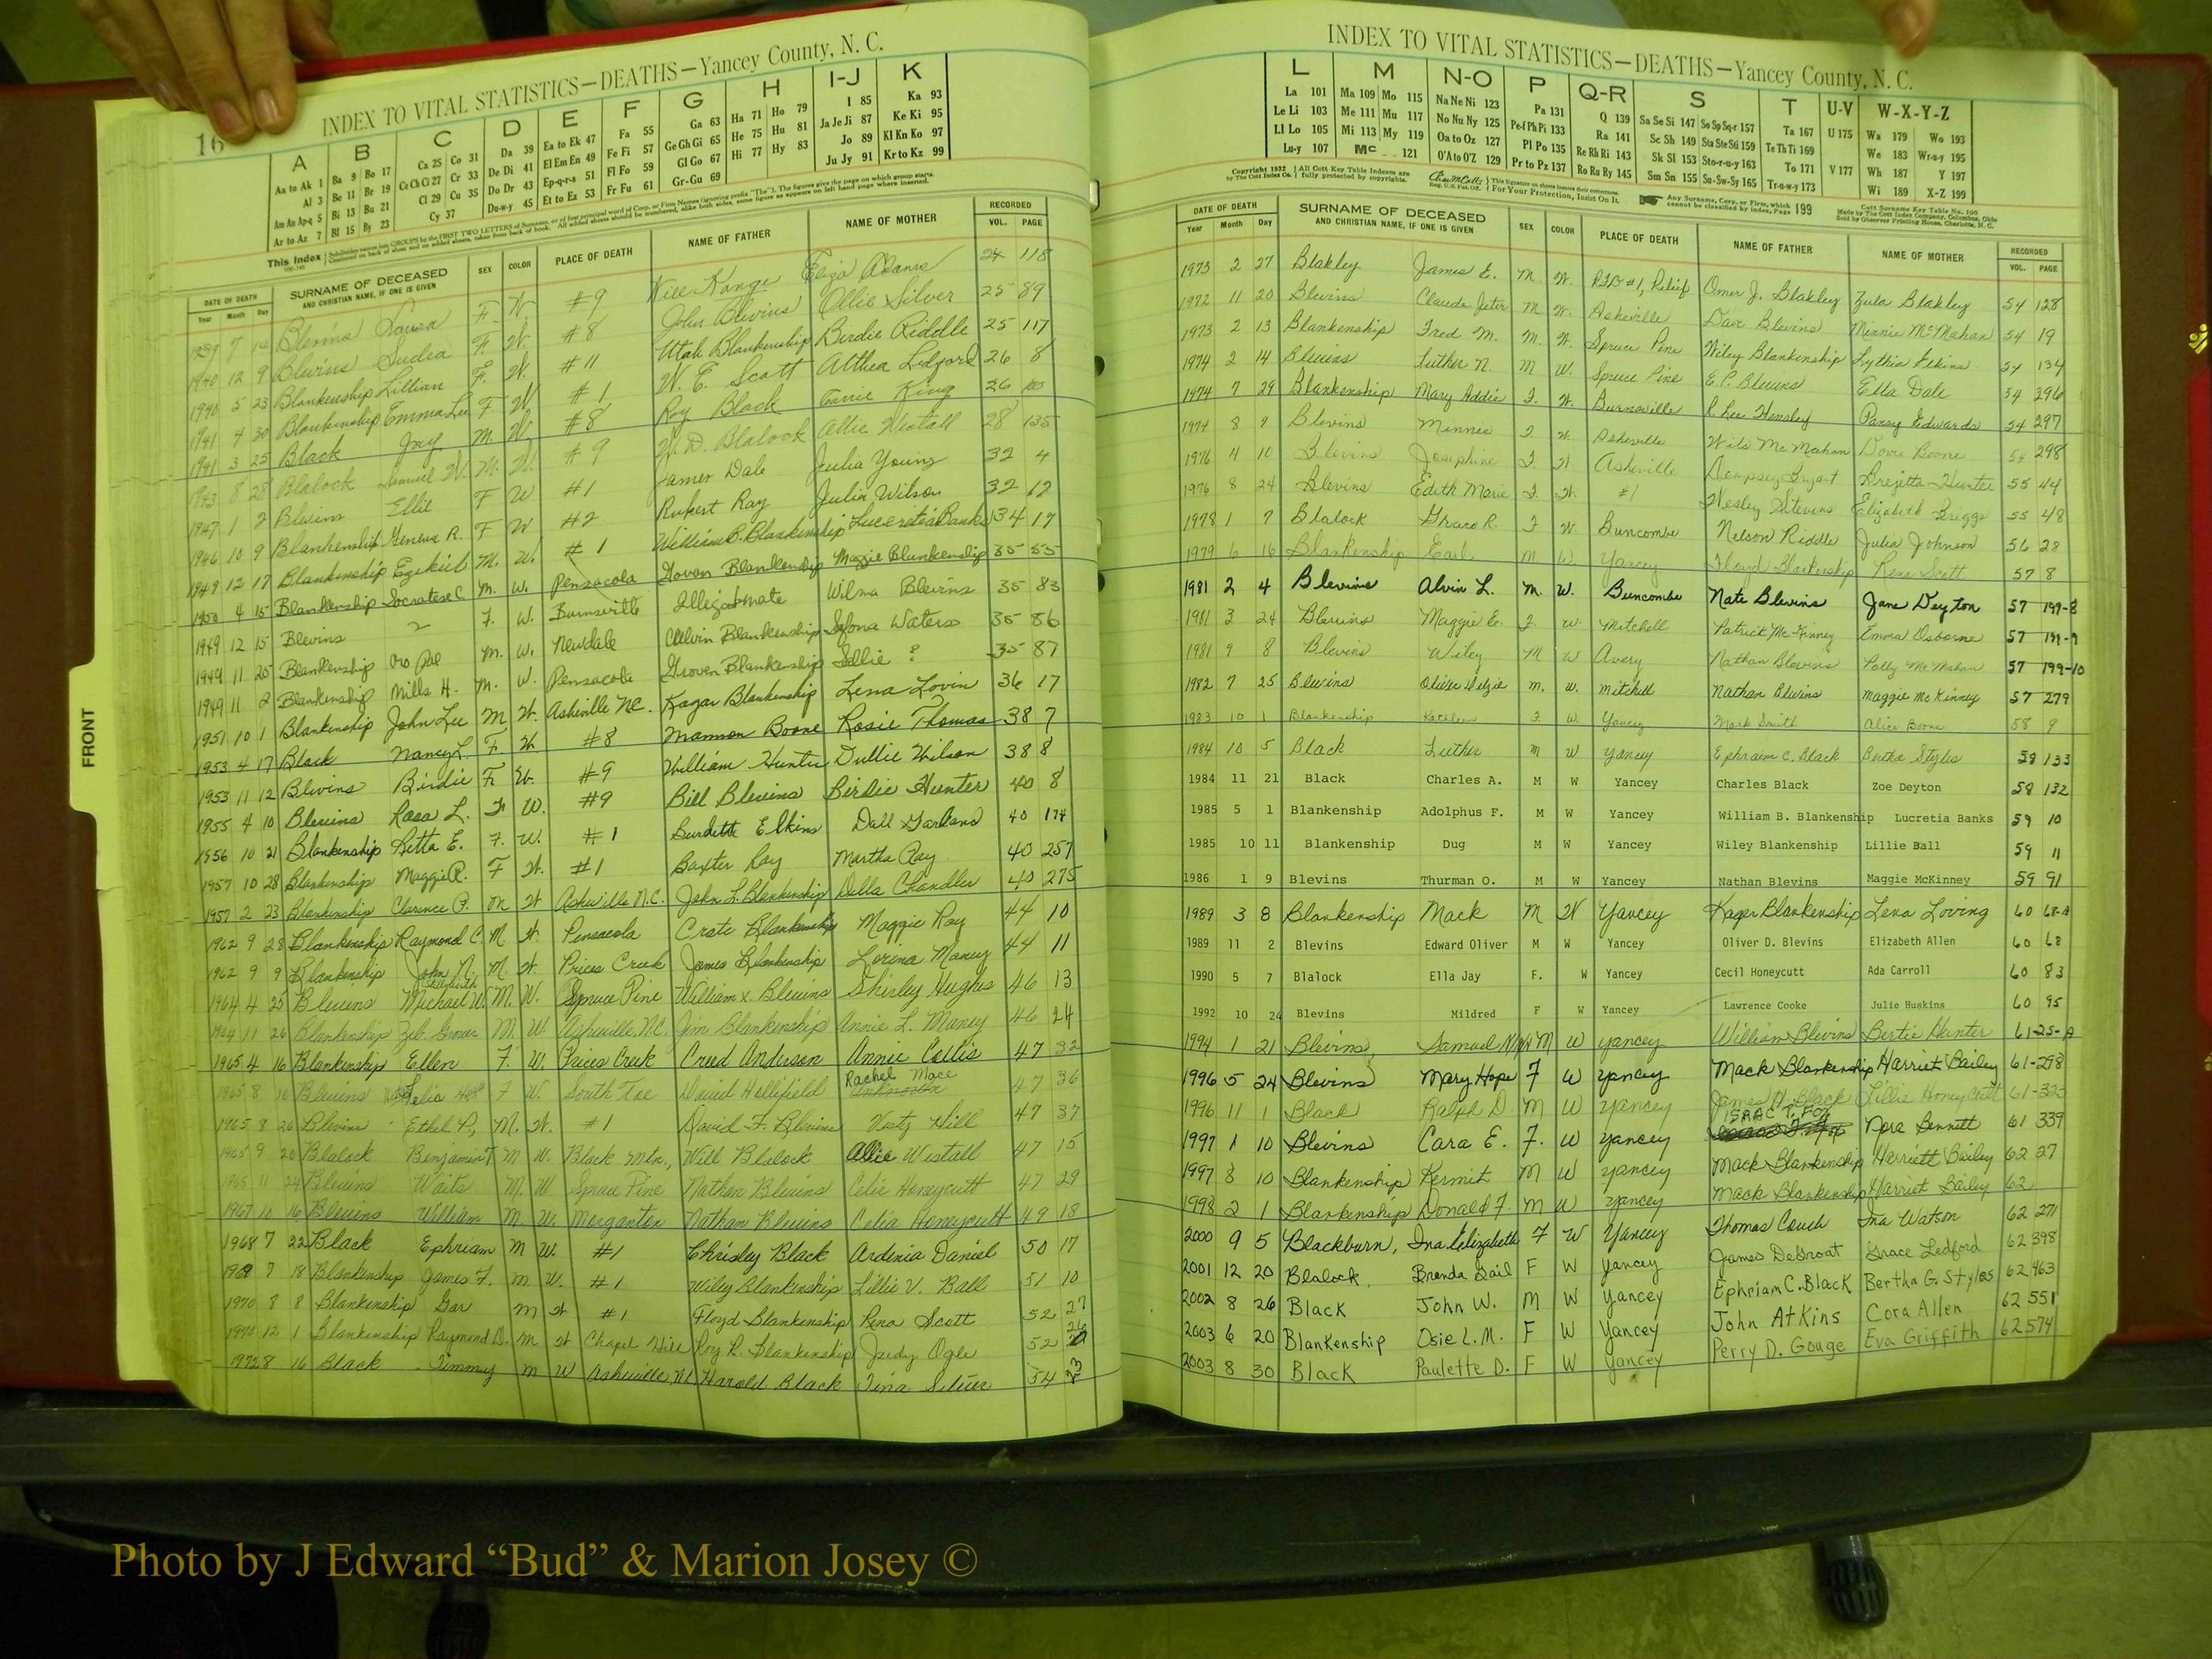 16
INDEX TO VITAL STATISTICS—DEATHS—Yancey County, N. C.
A B C D E F G H I-J K
Aa to Ak 1 Ba 9 Bo 17 Ca 25 Co 31 Da 39 Ea to Ek 47 Fa 55 Ga 63 Ha 71 Ho 79 I 85 Ka 93
Al 3 Be 11 Br 19 Ce Ch Ci 27 Cr 33 De Di 41 El Em En 49 Fe Fi 57 Ge Gh Gi 65 He 75 Hu 81 Ja Je Ji 87 Ke Ki 95
Am An Ap-q 5 Bi 13 Bu 21 Cl 29 Cu 35 Do Dr 43 Ep-q-r-s 51 Fl Fo 59 Gl Go 67 Hi 77 Hy 83 Jo 89 Kl Kn Ko 97
Ar to Az 7 Bl 15 By 23 Cy 37 Du-w-y 45 Et to Ez 53 Fr Fu 61 Gr-Gu 69 Ju Jy 91 Kr to Kz 99
DATE OF DEATH SURNAME OF DECEASED AND CHRISTIAN NAME, IF ONE IS GIVEN SEX COLOR PLACE OF DEATH NAME OF FATHER NAME OF MOTHER RECORDED
Year Month Day VOL. PAGE
7 14 Blevins Lousa F. W #9 Eliza Adams 24 118
1940 12 9 Blevins F. W. #8 John Blevins Ollie Silver 25 89
1940 5 23 Blankenship Lillian F. W. #11 Utah Blankenship Birdie Riddle 25 117
1941 4 30 Blankenship Emma Lee F W #1 W. E. Scott Althea Ledford 26 8
1941 3 25 Black Jay M. W. #8 Roy Black King 26
1943 8 28 Blalock Samuel W. M. W. #9 W. D. Blalock Allie Westall 28 135
1947 1 2 Blevins Ellie F W #1 James Dale Julia Young 32 4
1946 10 9 Blankenship Geneva R. F W #2 Rupert Ray Julia Wilson 32 12
1949 12 17 Blankenship Ezekiel M. W. #1 William B. Blankenship Lucretia Banks 34 17
1950 4 15 Blankenship Socrates C M. W. Pensacola Blankenship Maggie Blankenship 35 55
1949 12 15 Blevins F. W. Burnsville Illegitimate Wilma Blevins 35 83
1949 11 25 Blankenship M. W. Newdale Calvin Blankenship Waters 35 86
1949 11 2 Blankenship Mills H. M. W. Pensacola Grover Blankenship Sallie ? 35 87
1951 10 1 Blankenship John Lee M W. Asheville N.C. Kagar Blankenship Lena Lovin 36 17
1953 4 17 Black Nancy L. F. W #8 Mannon Boone Rosie Thomas 38 7
1953 11 12 Blevins Birdie F. W. #9 William Hunter Dullie Wilson 38 8
1955 4 10 Blevins Rosa L. F W. #9 Bill Blevins Birdie Hunter 40 8
1956 10 21 Blankenship Retta E. F. W. #1 Burdette Elkins Dall Garland 40 174
1957 10 28 Blankenship Maggie R. F W. #1 Baxter Ray Martha Ray 40 257
1957 2 23 Blankenship Clarence P. M W Asheville N.C. John L. Blankenship Della Chandler 40 275
1962 9 28 Blankenship Raymond C. M W. Pensacola Crate Blankenship Maggie Ray 44 10
1962 9 9 Blankenship John N. M. W. Prices Creek James Blankenship Lorina Maney 44 11
1964 4 25 Blevins Michael W. M. W. Spruce Pine William K. Blevins Shirley Hughes 46 13
1964 11 26 Blankenship Zeb Grover M. W. Asheville N.C. Jim Blankenship Annie L. Maney 46 24
1965 4 16 Blankenship Ellen F. W. Prices Creek Creed Anderson Annie Collis 47 32
1965 8 10 Blevins Lelia F W. South Toe David Hollifield Rachel Mace 47 36
1965 8 26 Blevins Ethel P., M. W. #1 David F. Blevins Hill 47 37
1965 9 20 Blalock Benjamin T M W. Black Mtn., Will Blalock Allie Westall 47 15
1965 11 24 Blevins Waits M. W Spruce Pine Nathan Blevins Celie Honeycutt 47 29
1967 10 16 Blevins William M. W. Morganton Nathan Blevins Celia Honeycutt 49 18
1968 7 22 Black Ephriam M W. #1 Chrisley Black Ardenia Daniel 50 17
1969 7 18 Blankenship James F. M. W. #1 Wiley Blankenship Lillie V. Ball 51 10
1970 8 8 Blankenship Gar M W #1 Floyd Blankenship Rena Scott 52 27
1970 12 1 Blankenship Raymond D. M W Chapel Hill Roy R. Blankenship Judy Ogle 52 26
1972 8 16 Black Timmy M W Asheville, NC Harold Black Tina Silver 54 3
FRONT
INDEX TO VITAL STATISTICS—DEATHS—Yancey County, N. C.
L M N-O P Q-R S T U-V W-X-Y-Z
La 101 Ma 109 Mo 115 Na Ne Ni 123 Pa 131 Q 139 Sa Se Si 147 So Sp Sq-r 157 Ta 167 U 175 Wa 179 Wo 193
Le Li 103 Me 111 Mu 117 No Nu Ny 125 Pe-f Ph Pi 133 Ra 141 Sc Sh 149 Sta Ste Sti 159 Te Th Ti 169 We 183 Wr-u-y 195
Ll Lo 105 Mi 113 My 119 Oa to Oz 127 Pl Po 135 Re Rh Ri 143 Sk Sl 153 Sto-r-u-y 163 To 171 V 177 Wh 187 Y 197
Lu-y 107 Mc 121 O'A to O'Z 129 Pr to Pz 137 Ro Ru Ry 145 Sm Sn 155 Su-Sw-Sy 165 Tr-u-w-y 173 Wi 189 X-Z 199
DATE OF DEATH SURNAME OF DECEASED AND CHRISTIAN NAME, IF ONE IS GIVEN SEX COLOR PLACE OF DEATH NAME OF FATHER NAME OF MOTHER RECORDED
Year Month Day VOL. PAGE
1973 2 27 Blakley James E. M. W. RFD #1, Relief Omer J. Blakley Zula Blakley 54 128
1972 11 20 Blevins Claude Jeter M. W. Asheville Dave Blevins Minnie McMahan 54 19
1973 2 13 Blankenship Fred M. M. W. Spruce Pine Wiley Blankenship Lythia Elkins 54 134
1974 2 14 Blevins Luther N. M W. Spruce Pine E. P. Blevins Ella Dale 54 296
1974 7 29 Blankenship Mary Addie F. W. Burnsville R. Lee Hensley Pansy Edwards 54 297
1974 8 9 Blevins Minnie F W. Asheville Wils McMahan Dovie Boone 54 298
1976 4 10 Blevins Josephine F. W Asheville Dempsey Bryant Brejetta Hunter 55 44
1976 8 24 Blevins Edith Marie F. W. #1 Wesley Stevens Elizabeth Griggs 55 48
1978 1 7 Blalock Grace R. F W. Buncombe Nelson Riddle Julia Johnson 56 28
1979 6 16 Blankenship Earl M W. Yancey Floyd Blankenship Rena Scott 57 8
1981 2 4 Blevins Alvin L. M. W. Buncombe Nate Blevins Jane Deyton 57 199-8
1981 3 24 Blevins Maggie E. F. W. Mitchell Patrick McKinney Emma Osborne 57 199-9
1981 9 8 Blevins Wiley M W Avery Nathan Blevins Polly McMahan 57 199-10
1982 7 25 Blevins Oliver Dezie M. W. Mitchell Nathan Blevins Maggie McKinney 57 279
1983 10 1 Blankenship Kathleen F. W. Yancey Mark Smith Alice Boone 58 9
1984 10 5 Black Luther M W Yancey Ephraim C. Black Bertha Styles 58 133
1984 11 21 Black Charles A. M W Yancey Charles Black Zoe Deyton 58 132
1985 5 1 Blankenship Adolphus F. M W Yancey William B. Blankenship Lucretia Banks 59 10
1985 10 11 Blankenship Dug M W Yancey Wiley Blankenship Lillie Ball 59 11
1986 1 9 Blevins Thurman O. M W Yancey Nathan Blevins Maggie McKinney 59 91
1989 3 8 Blankenship Mack M W Yancey Kager Blankenship Lena Loving 60 68-A
1989 11 2 Blevins Edward Oliver M W Yancey Oliver D. Blevins Elizabeth Allen 60 68
1990 5 7 Blalock Ella Jay F. W Yancey Cecil Honeycutt Ada Carroll 60 83
1992 10 24 Blevins Mildred F W Yancey Lawrence Cooke Julie Huskins 60 95
1994 1 21 Blevins, Samuel M W Yancey William Blevins Bertie Hunter 61-25-A
1996 5 24 Blevins Mary Hope F W Yancey Mack Blankenship Harriet Bailey 61-298
1996 11 1 Black Ralph D. M W Yancey James H. Black Lillie Honeycutt 61-323
1997 1 10 Blevins Cara E. F. W Yancey ISAAC T. FOX Nora Bennett 61 339
1997 8 10 Blankenship Kermit M W Yancey Mack Blankenship Harriett Bailey 62 27
1998 2 1 Blankenship Donald F. M W Yancey Mack Blankenship Harriet Bailey 62
2000 9 5 Blackburn, Ina Elizabeth F W Yancey Thomas Couch Ina Watson 62 271
2001 12 20 Blalock, Brenda Gail F W Yancey James DeGroat Grace Ledford 62 398
2002 8 26 Black John W. M W Yancey Ephriam C. Black Bertha G. Styles 62 463
2003 6 20 Blankenship Osie L.M. F W Yancey John Atkins Cora Allen 62 551
2003 8 30 Black Paulette D. F W Yancey Perry D. Gouge Eva Griffith 62 574
Photo by J Edward “Bud” & Marion Josey ©